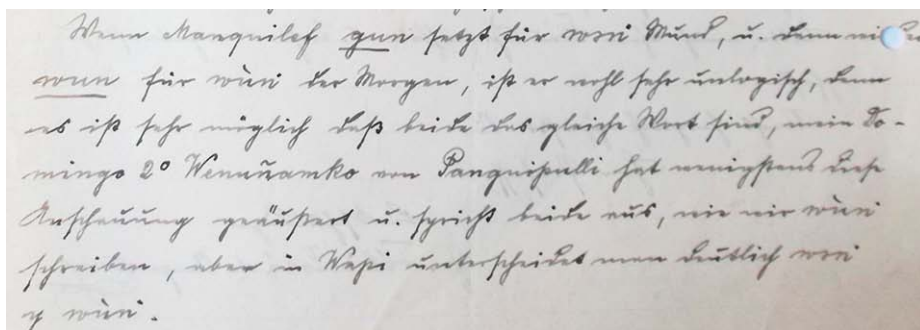 Wenn Manquilef gun setzt für wni Mund, u. dann wieder
wun für wùni der Morgen, ist er wohl sehr unlogisch, denn
es ist sehr möglich daß beide das gleiche Wort sind, mein Do-
mingo 2º Wenuñamko von Panguipulli hat wenigstens diese
Anschauung geäußert u. spricht beide aus, wie wir wùni
schreiben, aber in Wapi unterscheidet man deutlich
y wùni.